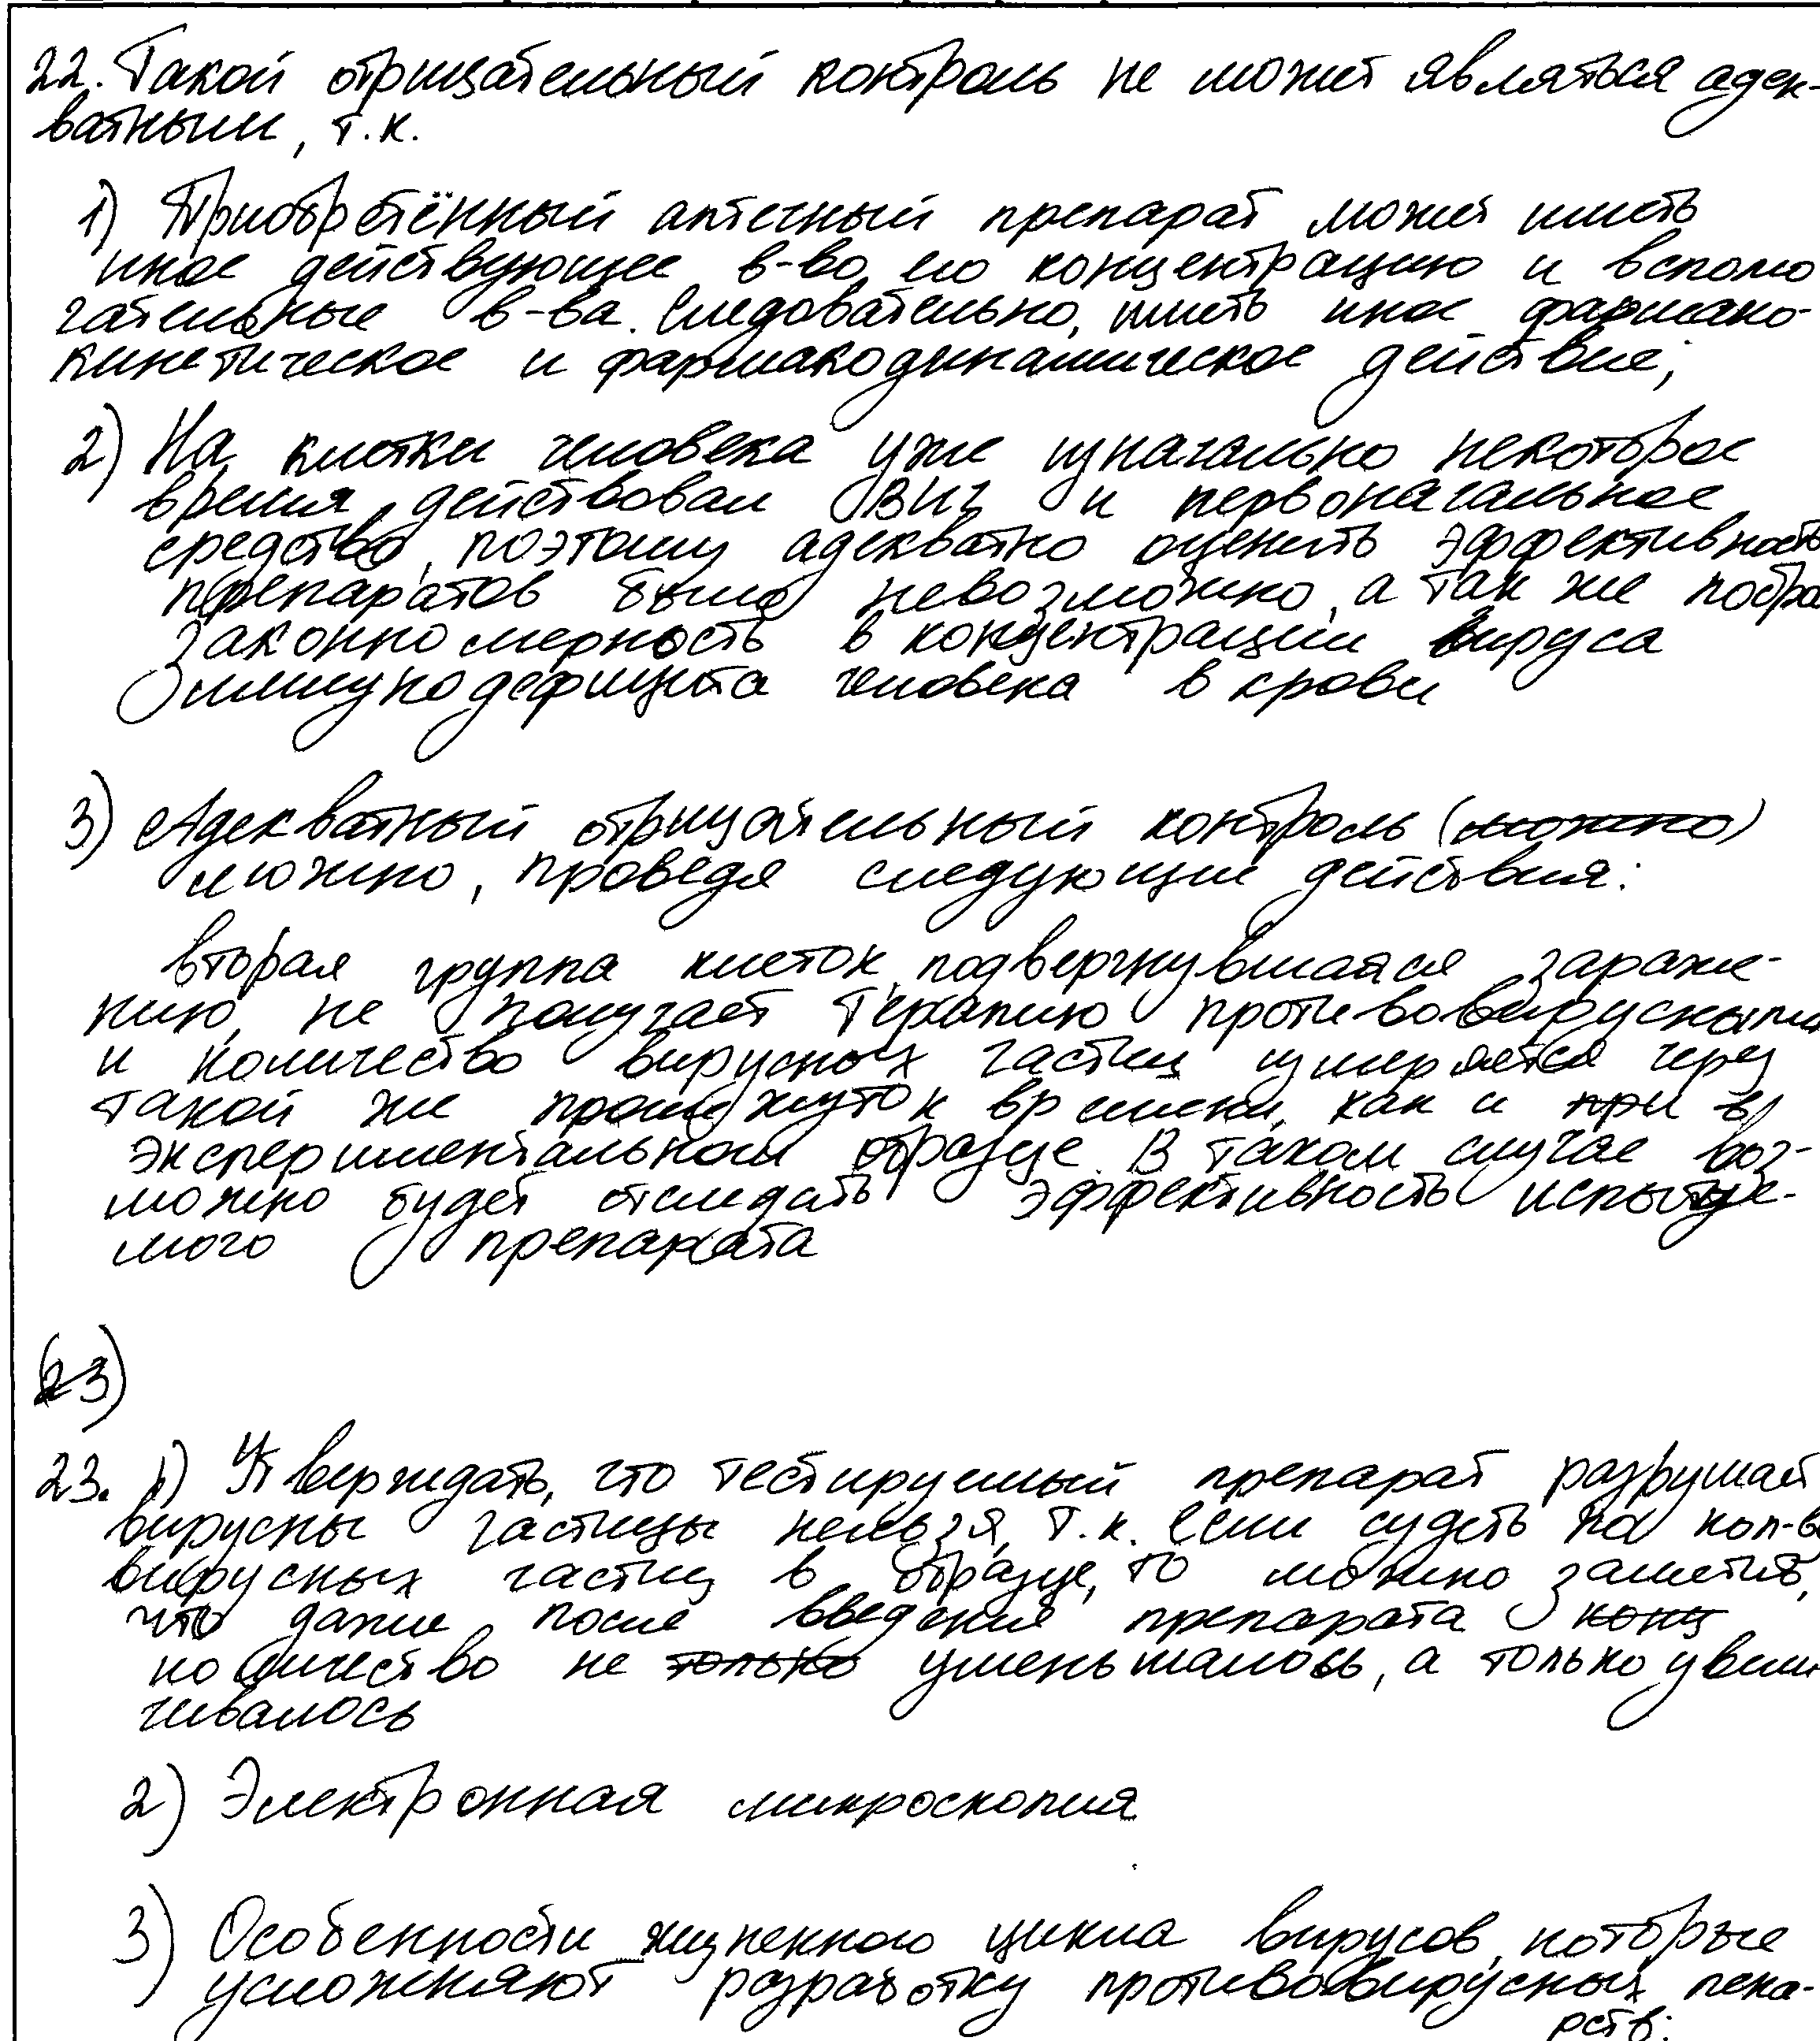 22. Такой отрицательный контроль не может являться адек-
ватным, т.к.
1) Приобретённый аптечный препарат может иметь
иное действующее в-во, его концентрацию и вспомо
гательные в-ва. Следовательно, иметь иное фармако-
кинетическое и фармакодинамическое действие;
2) На клетки человека уже изначально некоторое
время действовал ВИЧ и первоначальное
средство, поэтому адекватно оценить эффективность
препаратов было невозможно, а так же
закономерность в концентрации вируса
иммунодефицита человека в крови
3) Адекватный отрицательный контроль (можно)
можно, проведя следующие действия:
вторая группа клеток, подвергнувшаяся зараже-
нию, не получает терапию противовирусными
и количество вирусных частиц измеряется через
такой же промежуток времени, как и при в
экспериментальном образце. В таком случае воз-
можно будет отследать эффективность испытуе-
мого препарата
(23)
23. 1) Утверждать, что тестируемый препарат разрушает
вирусны частицы нельзя, т.к. если судеть по кол-ву
вирусных частиц в образце, то можно заметить,
что даже после введения препарата конц
количество не только уменьшалось, а только увели
чивалось
2) Электронная микроскопия
3) Особенности жизненного цикла вирусов, которые
усложняют разработку противовирусных лека-
рств: